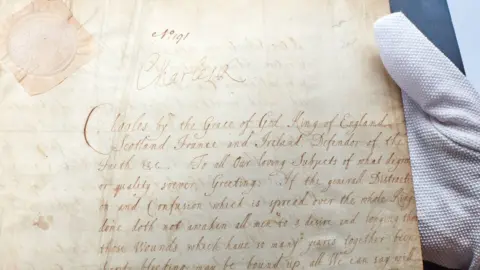 No 191
Charles R
Charles by the Grace of God King of England,
Scotland France and Ireland Defender of the
Faith &c. To all Our loving Subjects of what degree
or quality soever Greeting. If the generall Distracti
on and Confusion which is spread over the whole King
dome doth not awaken all men to a desire and longing tha
those Wounds which have so many years together been
kept bleeding may be bound up, all We can say will